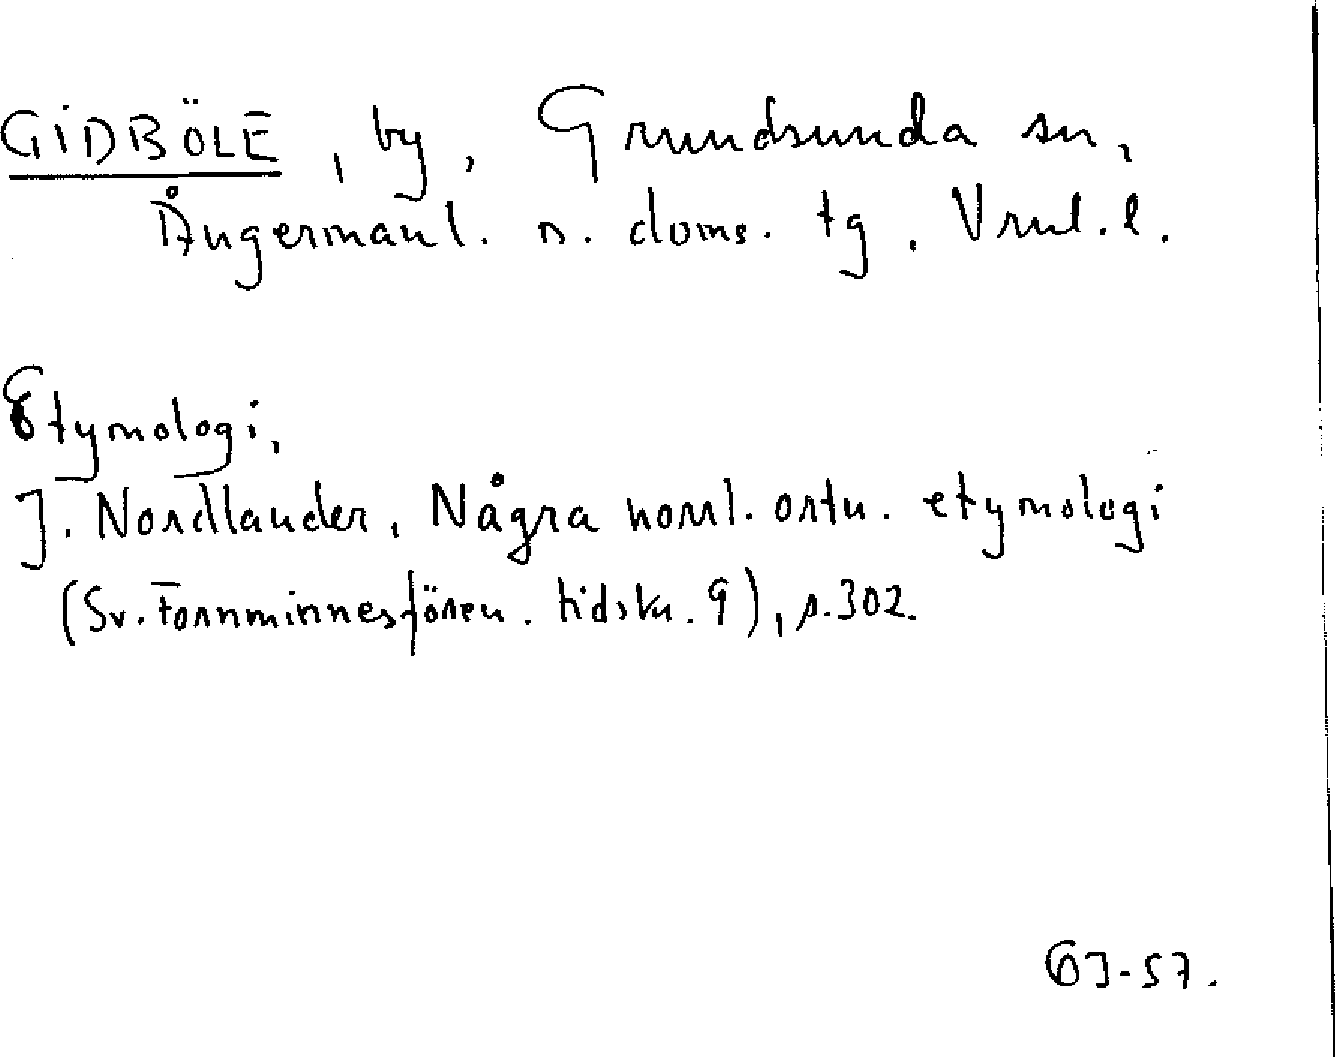 GIDBÖLE, by, Grundsunda sn,
Ångermanl. n. doms. tg. Vrnl. l.
Etymologi,
J. Nordlander, Några norrl. ortn. etymologi
(Sv. Fornminnesfören. tidskr. 9), s. 302.
GJ-57.